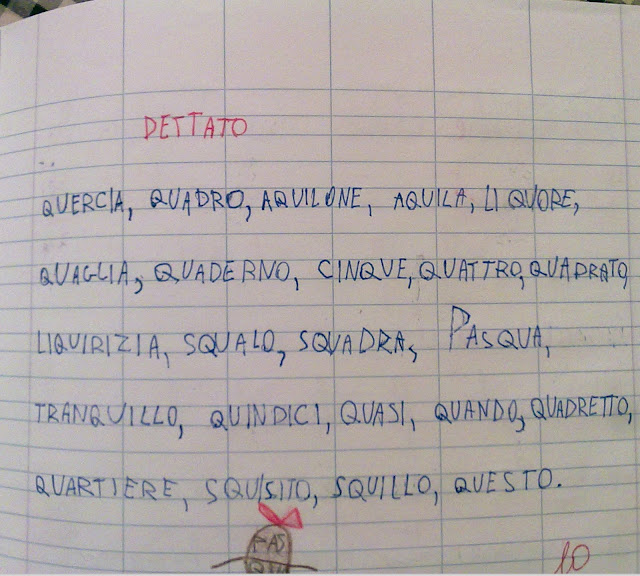 DETTATO
QUERCIA, QUADRO, AQUILONE, AQUILA, LIQUORE,
QUAGLIA, QUADERNO, CINQUE, QUATTRO, QUADRATO,
LIQUIRIZIA, SQUALO, SQUADRA, PASQUA,
TRANQUILLO, QUINDICI, QUASI, QUANDO, QUADRETTO,
QUARTIERE, SQUISITO, SQUILLO, QUESTO.
PAS
QUA
10